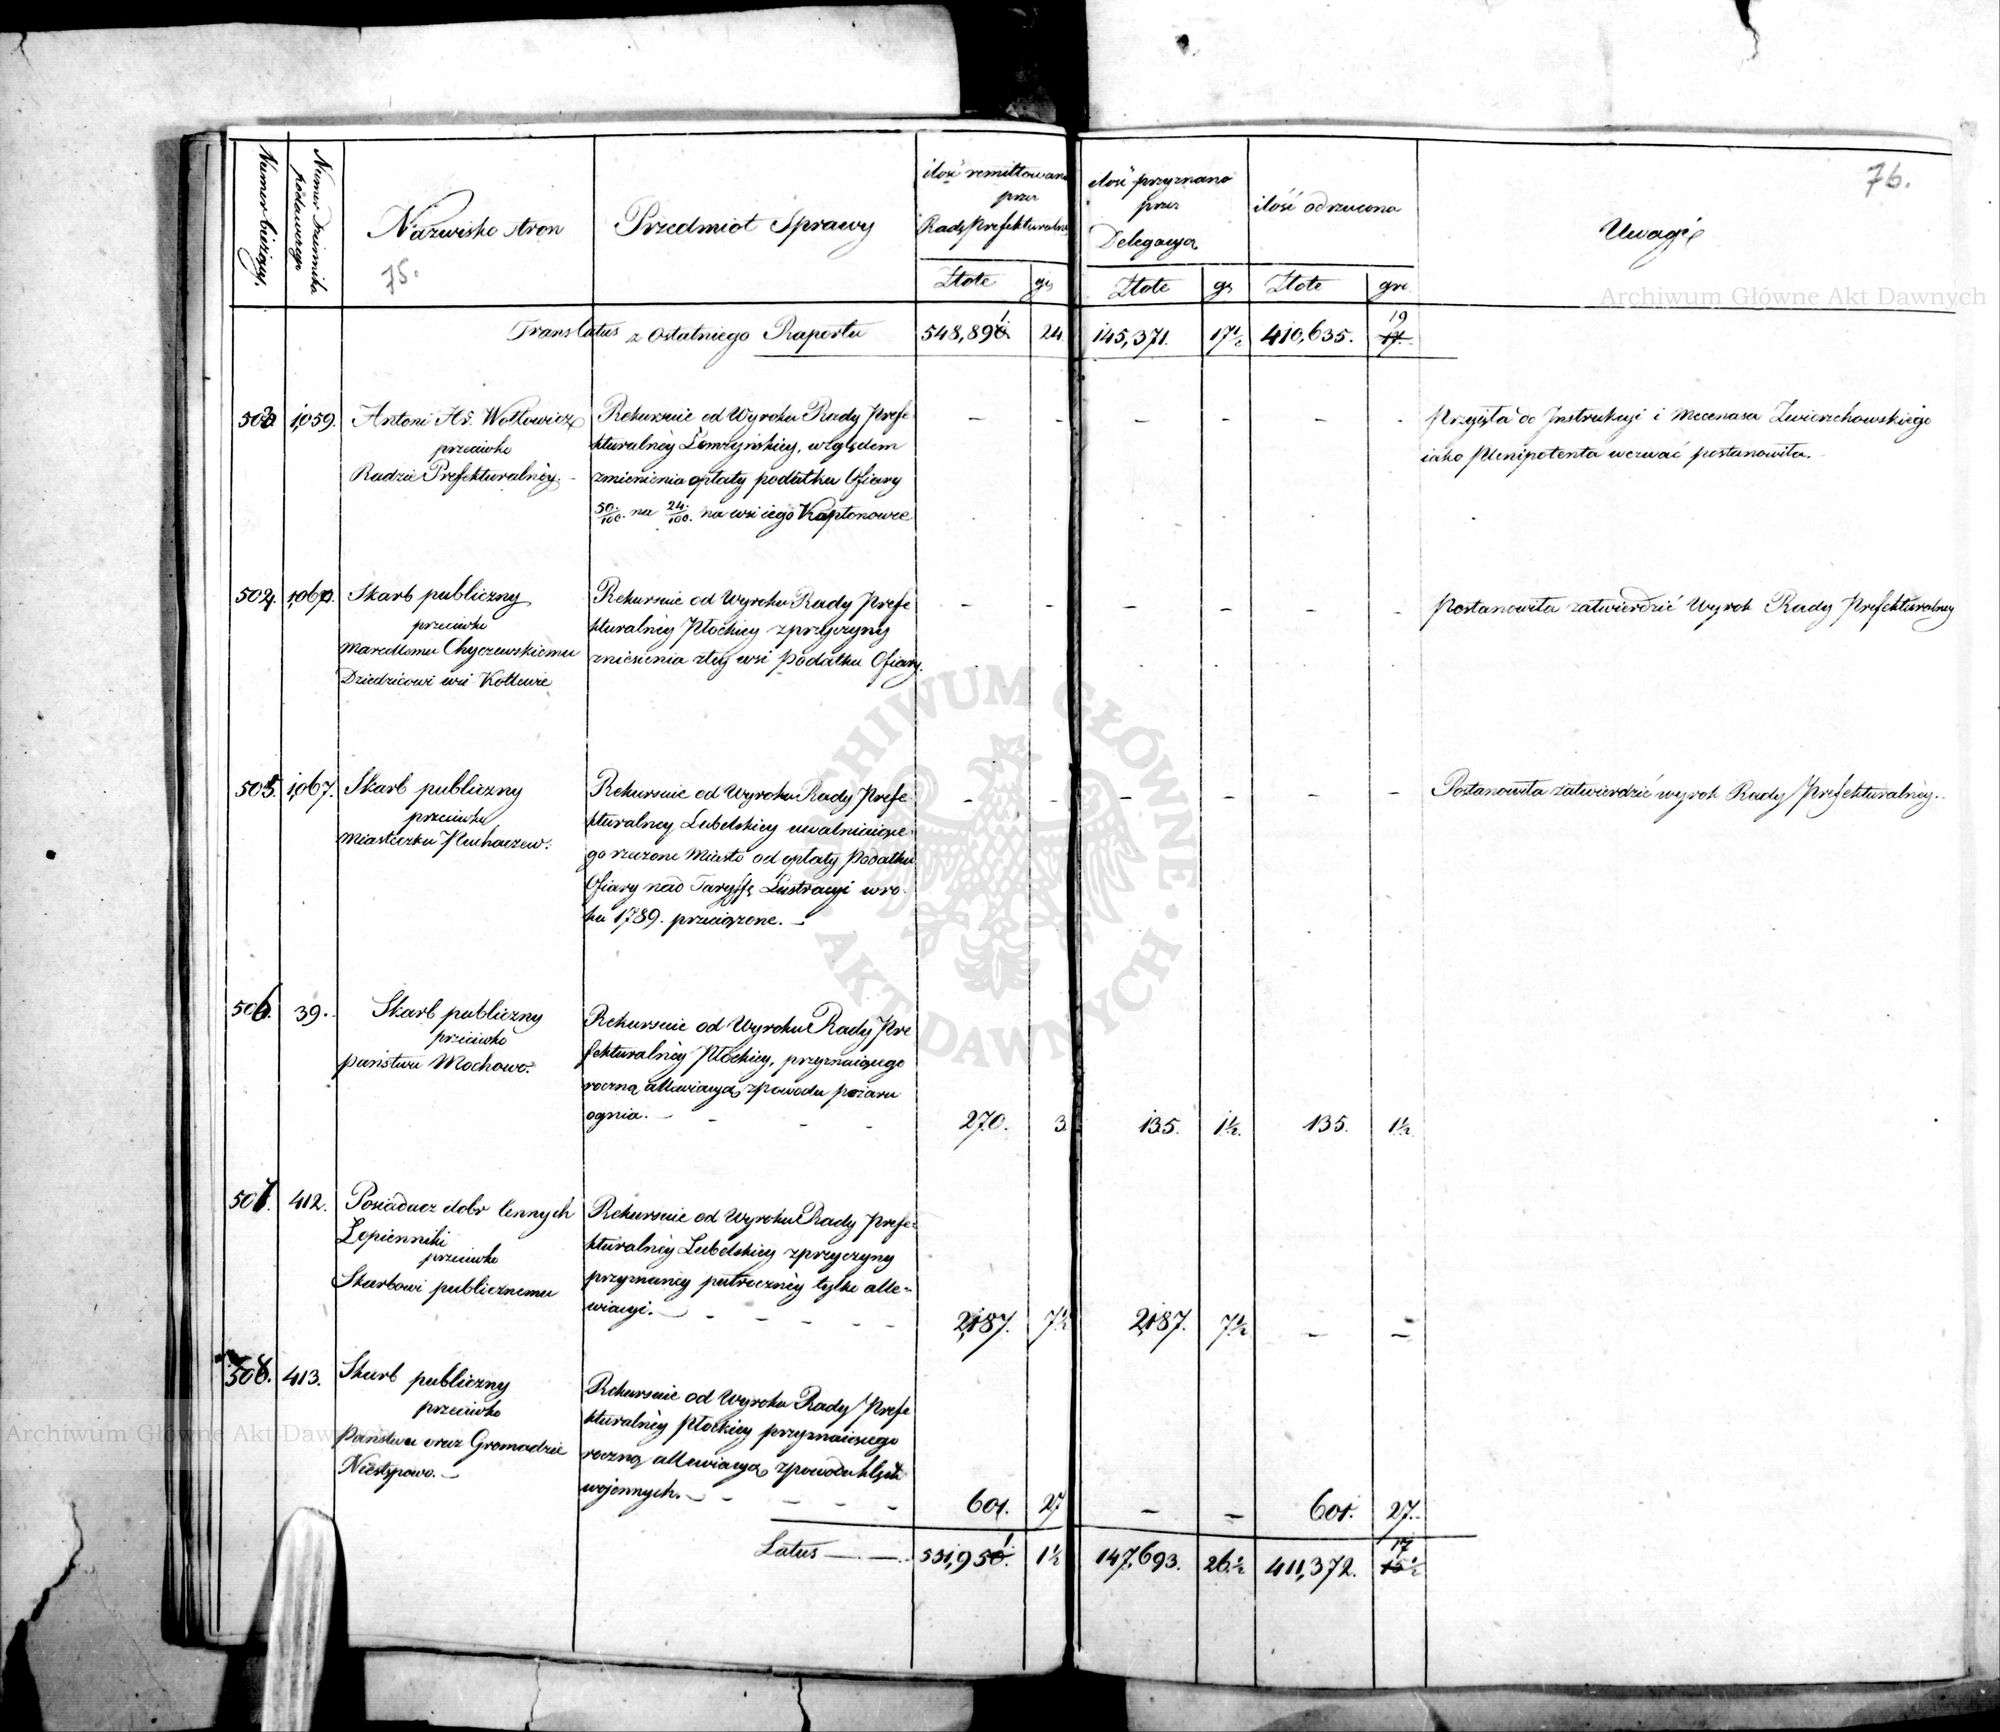 Numer bieżący.
Numer Dziennika
podawczego
Nazwisko stron
75.
Przedmiot Sprawy
ilość remittowana
przez
Radę Prefekturalną
Złote
gr
ilość przyznana
przez
Delegacyą
Złote
gr
ilość odrzucona
Złote
gro
Uwagi
76.
Archiwum Główne Akt Dawnych
Translatus z Ostatniego Raportu 548,891. 24. 145,371. 17½ 410,635. 19
17.
503. 1,059. Antoni Hr. Wołłowicz
przeciwko
Radzie Prefekturalnéy.
Rekursuie od Wyroku Rady Prefe
kturalnéy Łomżyńskiey, względem
zmienienia opłaty podatku Ofiary
50/100. na 24/100. na wsi iego Kaptonowce
– – – – – –
Przyięła do Instrukcyi i Mecenasa Zwierzchowskiego
iako Plenipotenta wezwać postanowiła.
504. Skarb publiczny
przeciwko
Marcellemu Chyczewskiemu
Dziedzicowi wsi
Rekursuie od Wyroku Rady Prefe
kturalnéy Płockiey z przyczyny
zniesienia z téy wsi Podatku Ofiary.
– – – – – –
Postanowiła zatwierdzić Wyrok Rady Prefekturalney
505. 1,067. Skarb publiczny
przeciwko
Miasteczku
Rekursuie od Wyroku Rady Prefe
kturalney Lubelskiey uwalniaiące
go rzeczone Miasto od opłaty Podatku
Ofiary nad Taryffę Lustracyi w ro
ku 1789. przeciążone. –
– – – – – –
Postanowiła zatwierdzić wyrok Rady Prefekturalnéy.
506. 39. Skarb publiczny
przeciwko
Państwu Mochowo.
Rekursuie od Wyroku Rady Pre
fekturalnéy Płockiey, przyznaiącego
roczną allewiacyą z powodu pożaru
ognia. – – – –
270. 3 135. 1½. 135. 1½
507. 412. Posiadacz dobr lennych
Łopienniki
przeciwko
Skarbowi publicznemu
Rekursuie od Wyroku Rady Prefe=
kturalnéy Lubelskiey z przyczyny
przyznaney półrocznéy tylko alle=
wiacyi. – – – – – –
2,187. 7½ 2,187. 7½ – –
508. 413. Skarb publiczny
przeciwko
Państwu oraz Gromadzie
Rekursuie od Wyroku Rady Prefe
kturalnéy Płockiey przyznaiącego
roczną allewiacyą z powodu klęsk
wojennych. – – – – –
601. 27 – – 601. 27.
Latus — — 551,951. 1½ 147,693. 26½ 411,372. 17
15½
Archiwum Główne Akt Dawnych
ARCHIWUM GŁÓWNE · AKT DAWNYCH ·